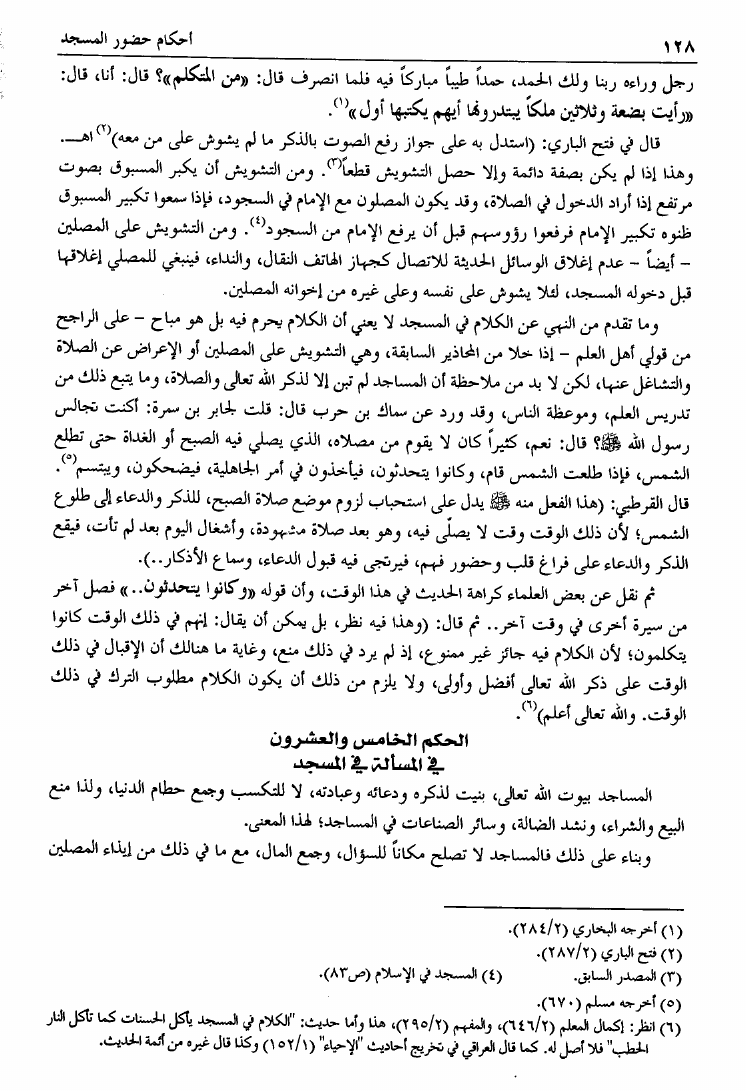 ١٢٨
أحكام حضور المسجد
رجل وراءه ربنا ولك الحمد، حمداً طيباً مباركاً فيه فلما انصرف قال: «من المتكلم»؟ قال: أنا، قال:
«رأيت بضعة وثلاثين ملكاً يبتدرونها أيهم يكتبها أول»(١).
قال في فتح الباري: (استدل به على جواز رفع الصوت بالذكر ما لم يشوش على من معه)(٢) اهـ.
وهذا إذا لم يكن بصفة دائمة وإلا حصل التشويش قطعاً(٣). ومن التشويش أن يكبر المسبوق بصوت
مرتفع إذا أراد الدخول في الصلاة، وقد يكون المصلون مع الإمام في السجود، فإذا سمعوا تكبير المسبوق
ظنوه تكبير الإمام فرفعوا رؤوسهم قبل أن يرفع الإمام من السجود(٤). ومن التشويش على المصلين
– أيضاً – عدم إغلاق الوسائل الحديثة للاتصال كجهاز الهاتف النقال، والنداء، فينبغي للمصلي إغلاقها
قبل دخوله المسجد، لئلا يشوش على نفسه وعلى غيره من إخوانه المصلين.
وما تقدم من النهي عن الكلام في المسجد لا يعني أن الكلام يحرم فيه بل هو مباح – على الراجح
من قولي أهل العلم – إذا خلا من المحاذير السابقة، وهي التشويش على المصلين أو الإعراض عن الصلاة
والتشاغل عنها، لكن لا بد من ملاحظة أن المساجد لم تبن إلا لذكر الله تعالى والصلاة، وما يتبع ذلك من
تدريس العلم، وموعظة الناس، وقد ورد عن سماك بن حرب قال: قلت لجابر بن سمرة: أكنت تجالس
رسول الله ﷺ؟ قال: نعم، كثيراً كان لا يقوم من مصلاه، الذي يصلي فيه الصبح أو الغداة حتى تطلع
الشمس، فإذا طلعت الشمس قام، وكانوا يتحدثون، فيأخذون في أمر الجاهلية، فيضحكون، ويبتسم(٥).
قال القرطبي: (هذا الفعل منه ﷺ يدل على استحباب لزوم موضع صلاة الصبح، للذكر والدعاء إلى طلوع
الشمس؛ لأن ذلك الوقت وقت لا يصلّى فيه، وهو بعد صلاة مشهودة، وأشغال اليوم بعد لم تأت، فيقع
الذكر والدعاء على فراغ قلب وحضور فهم، فيرتجى فيه قبول الدعاء، وسماع الأذكار..).
ثم نقل عن بعض العلماء كراهة الحديث في هذا الوقت، وأن قوله «وكانوا يتحدثون..» فصل آخر
من سيرة أخرى في وقت آخر.. ثم قال: (وهذا فيه نظر، بل يمكن أن يقال: إنهم في ذلك الوقت كانوا
يتكلمون؛ لأن الكلام فيه جائز غير ممنوع، إذ لم يرد في ذلك منع، وغاية ما هنالك أن الإقبال في ذلك
الوقت على ذكر الله تعالى أفضل وأولى، ولا يلزم من ذلك أن يكون الكلام مطلوب الترك في ذلك
الوقت. والله تعالى أعلم)(٦).
الحكم الخامس والعشرون
في المسألة في المسجد
المساجد بيوت الله تعالى، بنيت لذكره ودعائه وعبادته، لا للتكسب وجمع حطام الدنيا، ولذا منع
البيع والشراء، ونشد الضالة، وسائر الصناعات في المساجد؛ لهذا المعنى.
وبناء على ذلك فالمساجد لا تصلح مكاناً للسؤال، وجمع المال، مع ما في ذلك من إيذاء المصلين
(١) أخرجه البخاري (٢٨٤/٢).
(٢) فتح الباري (٢٨٧/٢).
(٣) المصدر السابق. (٤) المسجد في الإسلام (ص٨٣).
(٥) أخرجه مسلم (٦٧٠).
(٦) انظر: إكمال المعلم (٦٤٦/٢)، والمفهم (٢٩٥/٢)، هذا وأما حديث: "الكلام في المسجد يأكل الحسنات كما تأكل النار
الحطب" فلا أصل له. كما قال العراقي في تخريج أحاديث "الإحياء" (١٥٢/١) وكذا قال غيره من أئمة الحديث.